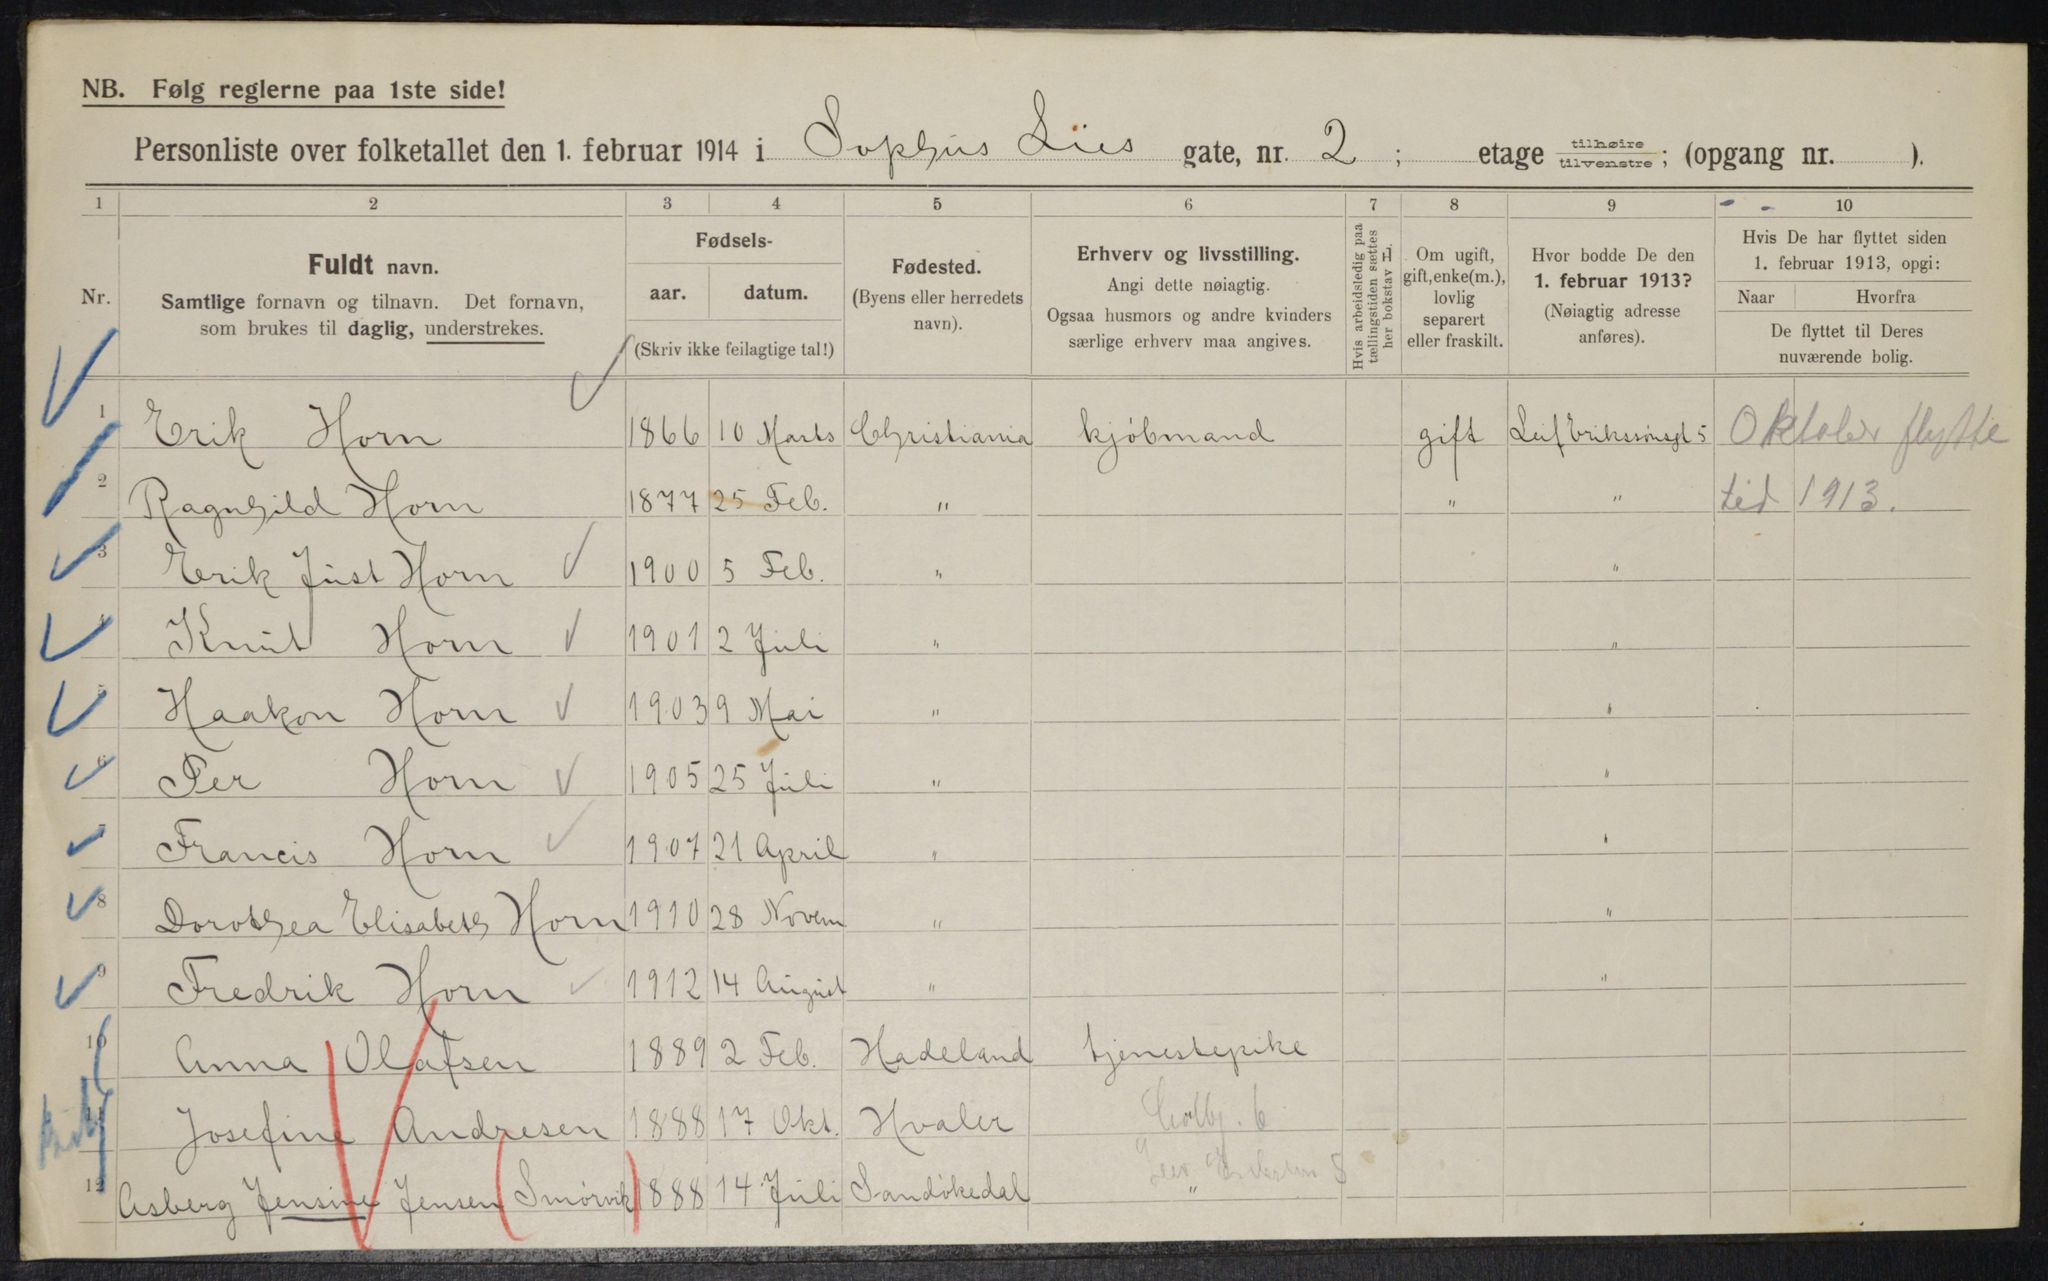 NB. Følg reglerne paa 1ste side!
Personliste over folketallet den 1. februar 1914 i Sophus Lies gate, nr. 2 ; etage tilhøire tilvenstre ; (opgang nr. ).
1 2 3 4 5 6 7 8 9 10
Nr.
Fuldt navn.
Samtlige fornavn og tilnavn. Det fornavn,
som brukes til daglig, understrekes.
Fødsels-
aar. datum.
(Skriv ikke feilagtige tal!)
Fødested.
(Byens eller herredets
navn).
Erhverv og livsstilling.
Angi dette nøiagtig.
Ogsaa husmors og andre kvinders
særlige erhverv maa angives.
Hvis arbeidsledig paa
tællingstiden sættes
her bokstav L.
Om ugift,
gift, enke(m.),
lovlig
separert
eller fraskilt.
Hvor bodde De den
1. februar 1913?
(Nøiagtig adresse
anføres).
Hvis De har flyttet siden
1. februar 1913, opgi:
Naar Hvorfra
De flyttet til Deres
nuværende bolig.
1 Erik Horn 1866 10 Marts Christiania kjøbmand gift Leif Erikssønsgt 5 Oktober flytte
2 Ragnhild Horn 1877 25 Feb. " " " tid 1913.
3 Erik Just Horn 1900 5 Feb. " "
4 Knut Horn 1901 2 Juli " "
5 Haakon Horn 1903 9 Mai " "
6 Per Horn 1905 25 Juli " "
7 Francis Horn 1907 21 April " "
8 Dorothea Elisabeth Horn 1910 28 Novem " "
9 Fredrik Horn 1912 14 August " "
10 Anna Olafsen 1889 2 Feb. Hadeland tjenestepike
11 Josefine Andresen 1888 17 Okt. Hvaler
12 Asberg Jensine Jensen (Smørvik) 1888 14 Juli Sandökedal "